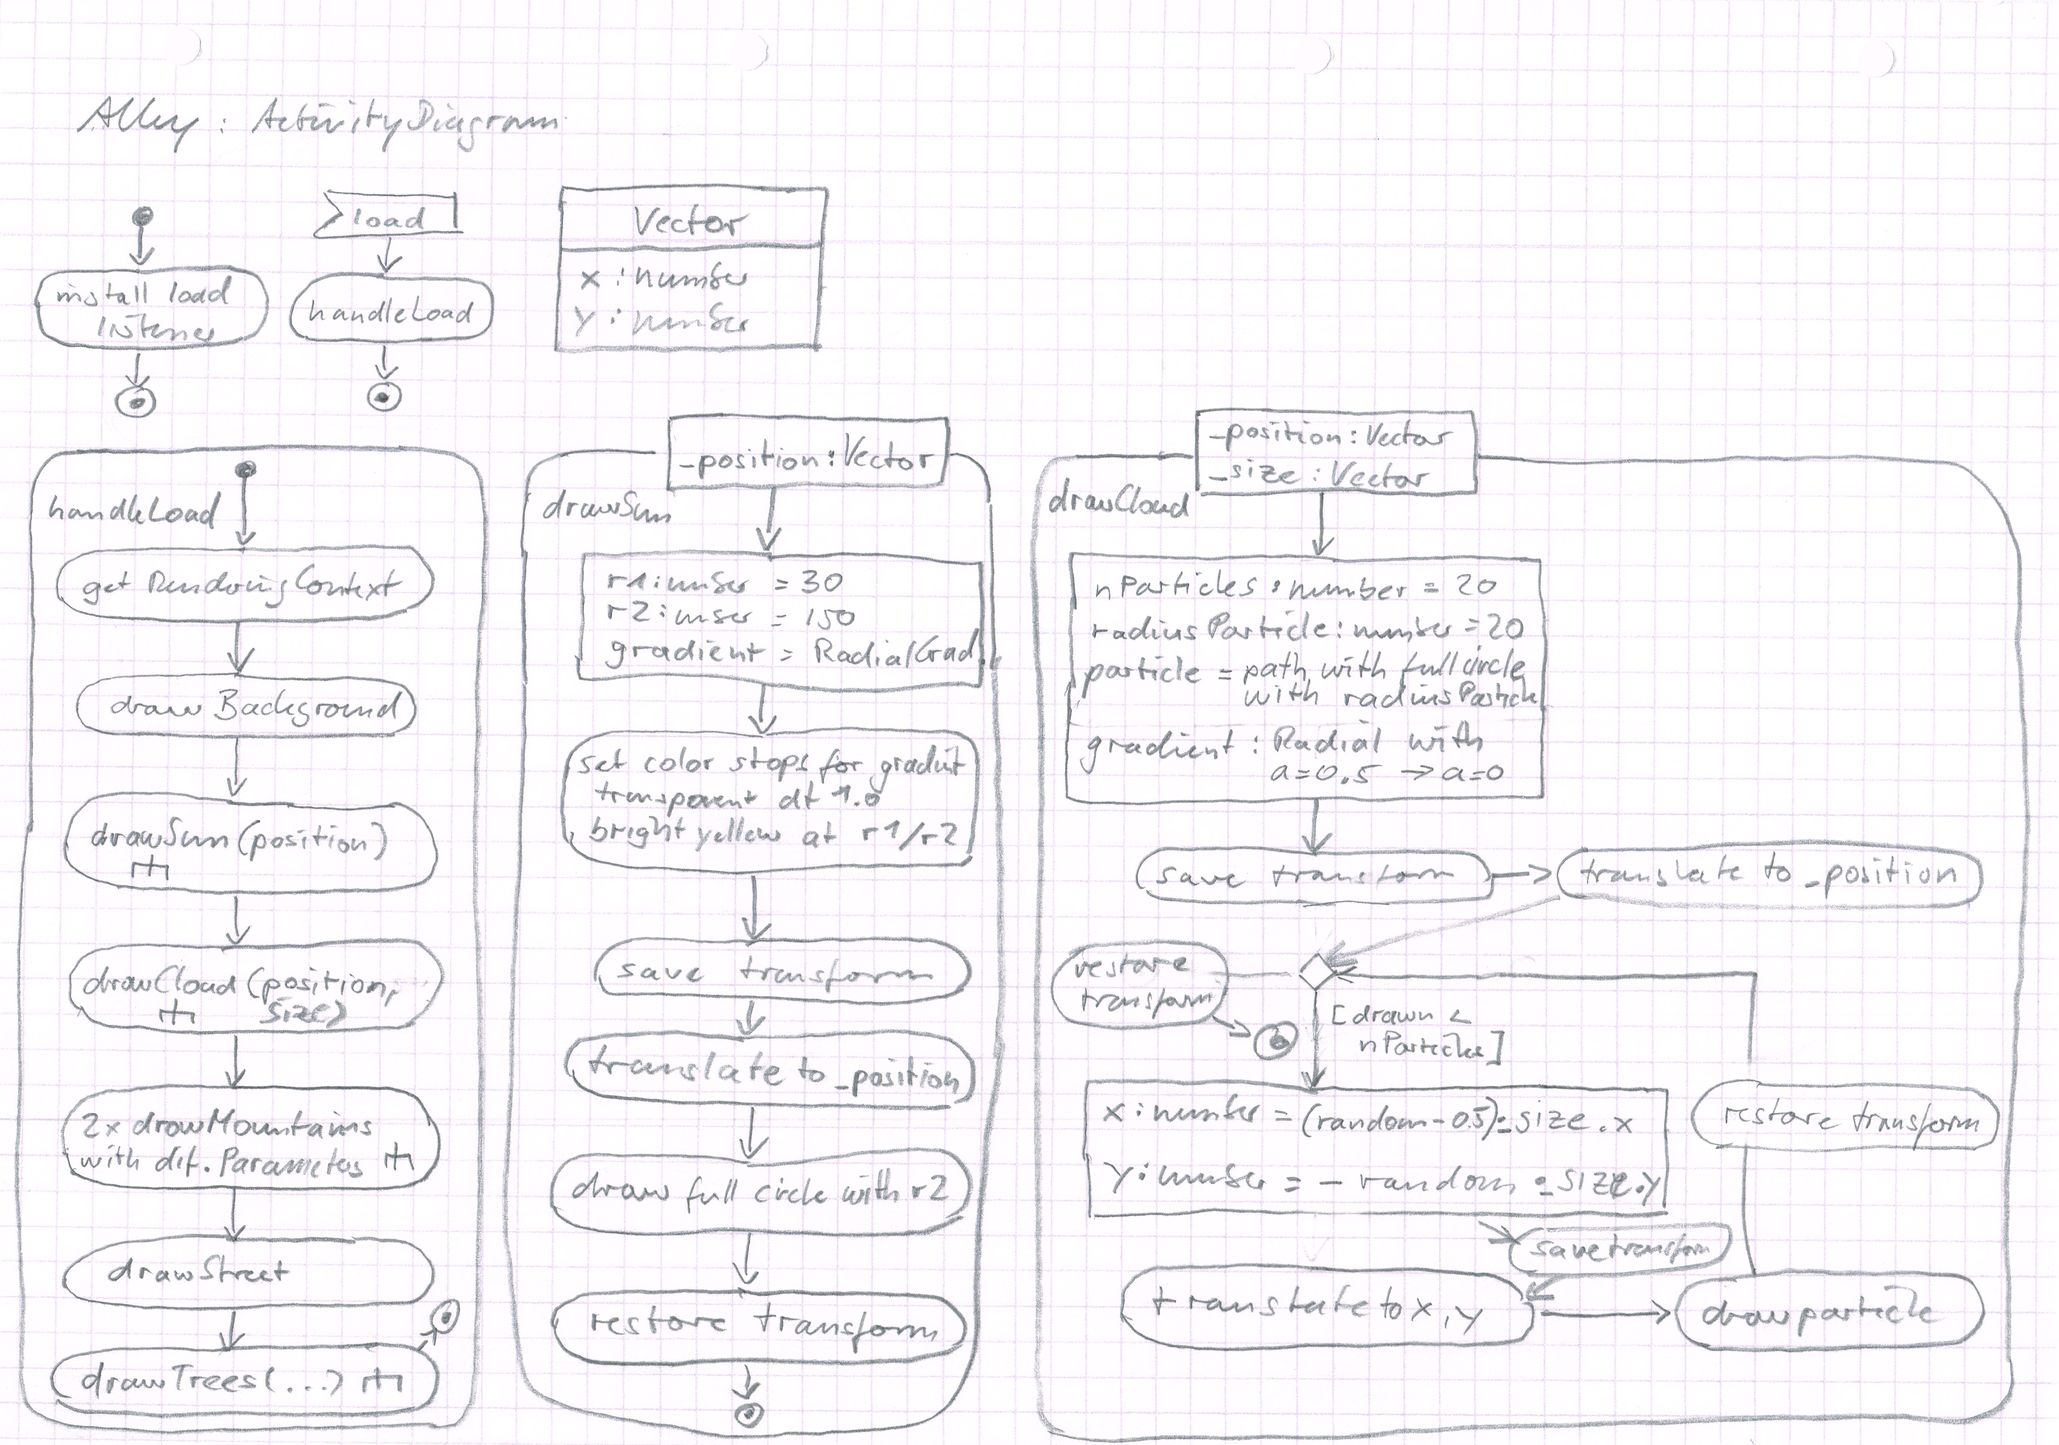 Alley : ActivityDiagram
install load
listener
load
handleLoad
Vector
x : number
y : number
handleLoad
get RenderingContext
draw Background
drawSun (position)
drawCloud (position,
size)
2x drawMountains
with dif. Parameters
drawStreet
drawTrees (...)
_position : Vector
drawSun
r1 : number = 30
r2 : number = 150
gradient = RadialGrad.
set color stops for gradient
transparent at 1.0
bright yellow at r1/r2
save transform
translate to _position
draw full circle with r2
restore transform
_position : Vector
_size : Vector
drawCloud
nParticles : number = 20
radiusParticle : number = 20
particle = path with full circle
with radiusParticle
gradient : Radial with
a=0.5 → a=0
save transform
translate to _position
restore
transform
[drawn <
nParticles]
x : number = (random - 0.5) · _size.x
y : number = - random · _size.y
restore transform
save transform
translate to x, y
draw particle